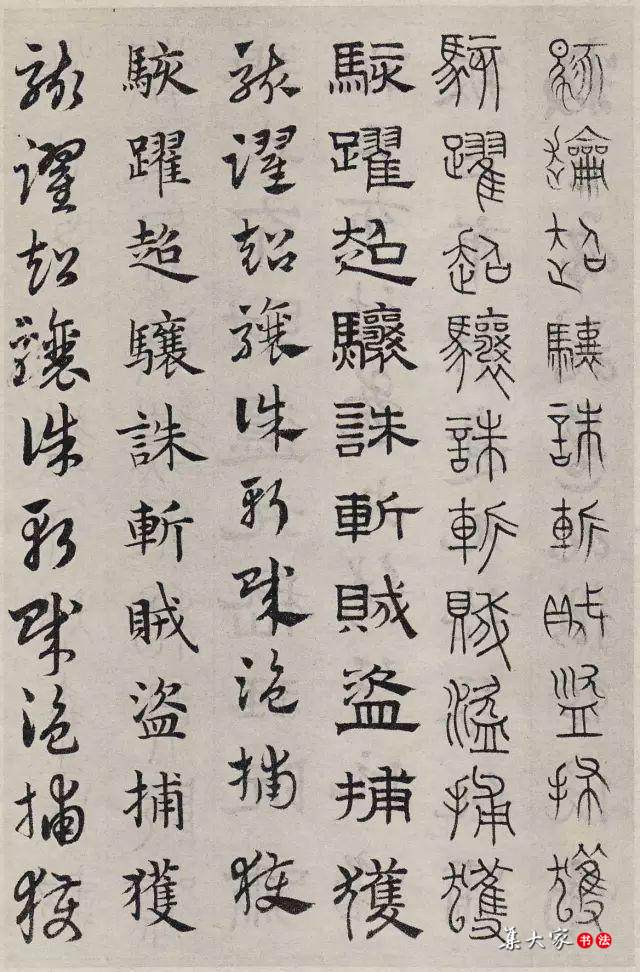 駭躍超驤誅斬賊盜捕獲
駭躍超驤誅斬賊盜捕獲
駭躍超驤誅斬賊盜捕獲
駭躍超驤誅斬賊盜捕獲
駭躍超驤誅斬賊盜捕獲
駭躍超驤誅斬賊盜捕獲
集大家 书法